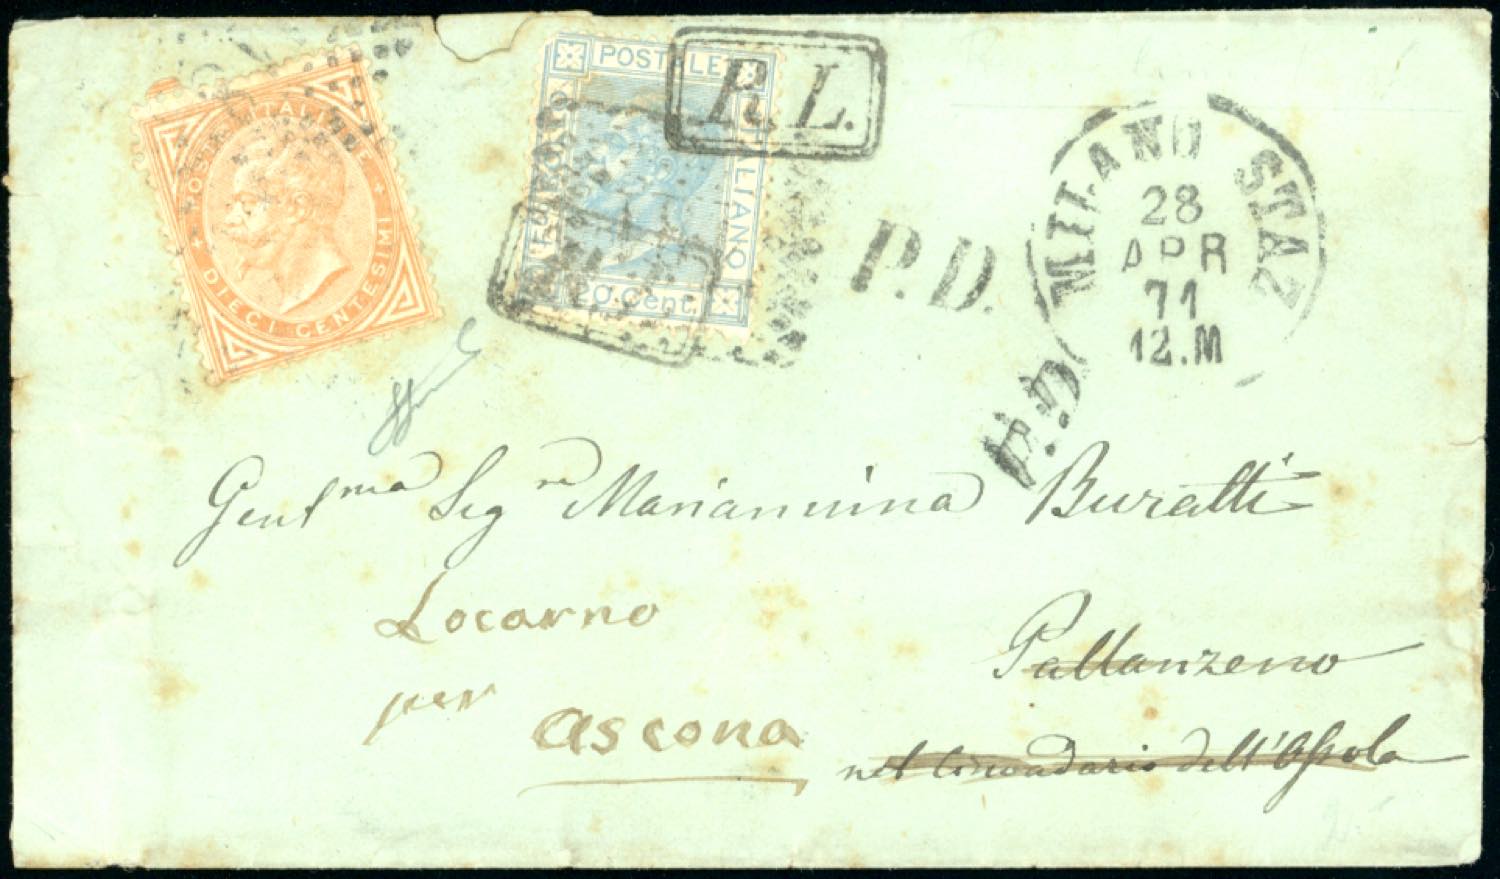 POSTE ITALIANE
DIECI CENTESIMI
POSTALE
ITALIANO
20. Cent.
R.L.
P.D.
P.D.
MILANO STAZ
28
APR
71
12.M
Gentma Sigra Mariannina Buratti
Locarno
per
Ascona
Pallanzeno
nel Circondario dell'Ossola